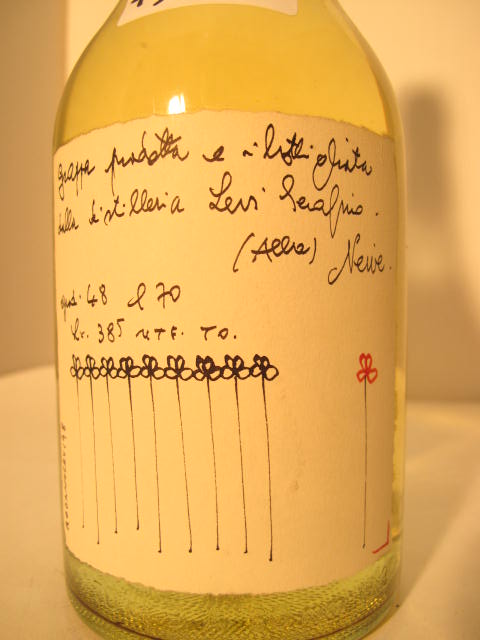 grappa prodotta e imbottigliata
dalla distilleria Levi Serafino.
(Alba) Neive.
grad. 48 cl 70
Lic. 385 UTF. TO.